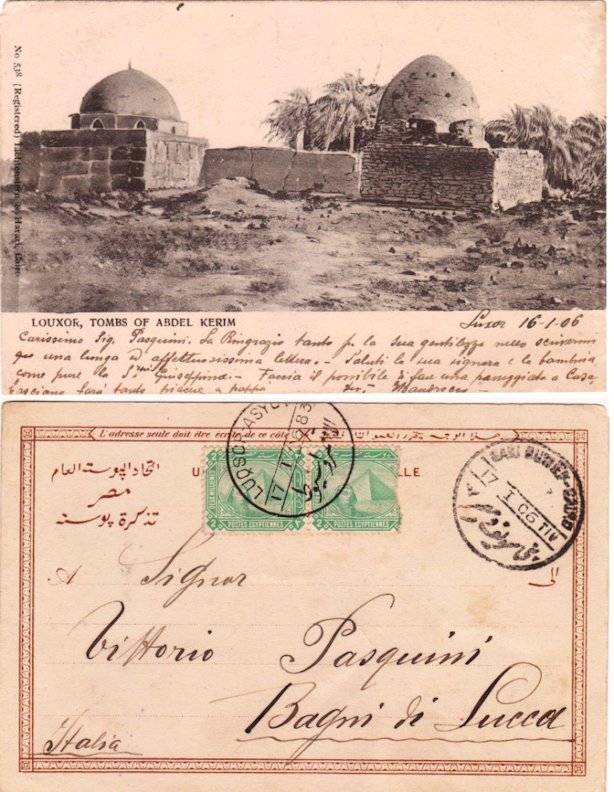 No 538 (Registered) Lichtenstern & Harari, Cairo
LOUXOR, TOMBS OF ABDEL KERIM
Luxor 16-1-06
Carissimo Sig. Pasquini. La Ringrazio tanto p. la sua gentilezza nello scrivermi
una lunga ed affettuosissima lettera. - Saluti la sua signora e la bambina
come pure la Giuseppina. - Faccia il possibile di fare una passeggiata a
farà tanto piacere a
L'adresse seule doit être écrite de ce côté
اتحاد البوستة العام
مصر
تذكرة بوستة
U
LLE
POSTES EGYPTIENNES
POSTES EGYPTIENNES
LUQSOR
17 I 06 TIV
A
الى
Signor
Vittorio Pasquini
Bagni di Lucca
Italia